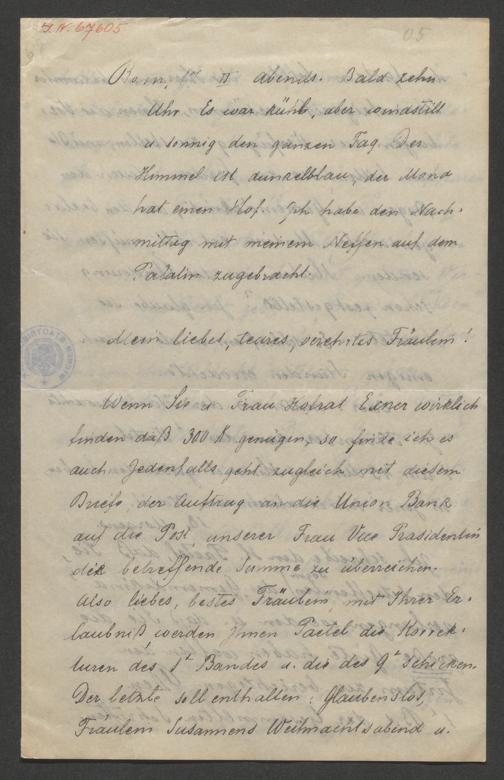 I. N. 67605
05
Rom, 1ten II abends. Bald zehn
Uhr. Es war kühl, aber windstill
u sonnig den ganzen Tag. Der
Himmel ist dunkelblau, der Mond
hat einen Hof. Ich habe den Nach-
mittag mit meinem Neffen auf dem
Palatin zugebracht.
Mein liebes, teures, verehrtes Fräulein!
Wenn Sie u Frau Hofrat Exner wirklich
finden daß 300 K genügen, so finde ich es
auch Jedenfalls geht zugleich mit diesem
Briefe der Auftrag an die Union Bank
auf die Post unserer Frau Vice Präsidentin
die betreffende Summe zu überreichen.
Also liebes, bestes Fräulein, mit Ihrer Er-
laubniß werden Ihnen Paetel die Korrek-
turen des 1t Bandes u. die des 9t schicken.
Der letzte soll enthalten: Glaubenslos,
Fräulein Susannens Weihnachtsabend u.